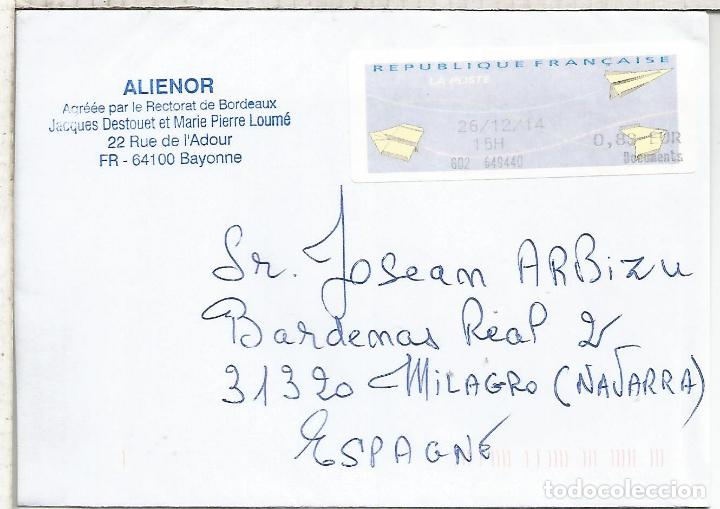 ALIENOR
Agréée par le Rectorat de Bordeaux
Jacques Destouet et Marie Pierre Loumé
22 Rue de l'Adour
FR - 64100 Bayonne
REPUBLIQUE FRANÇAISE
LA POSTE
26/12/14
15H
0,83 EUR
602 649440
Documents
Sr. Josean ARBizu
Bardenas Real 2
31320 MILAGRO (NAVARRA)
ESPAGNE
todocoleccion